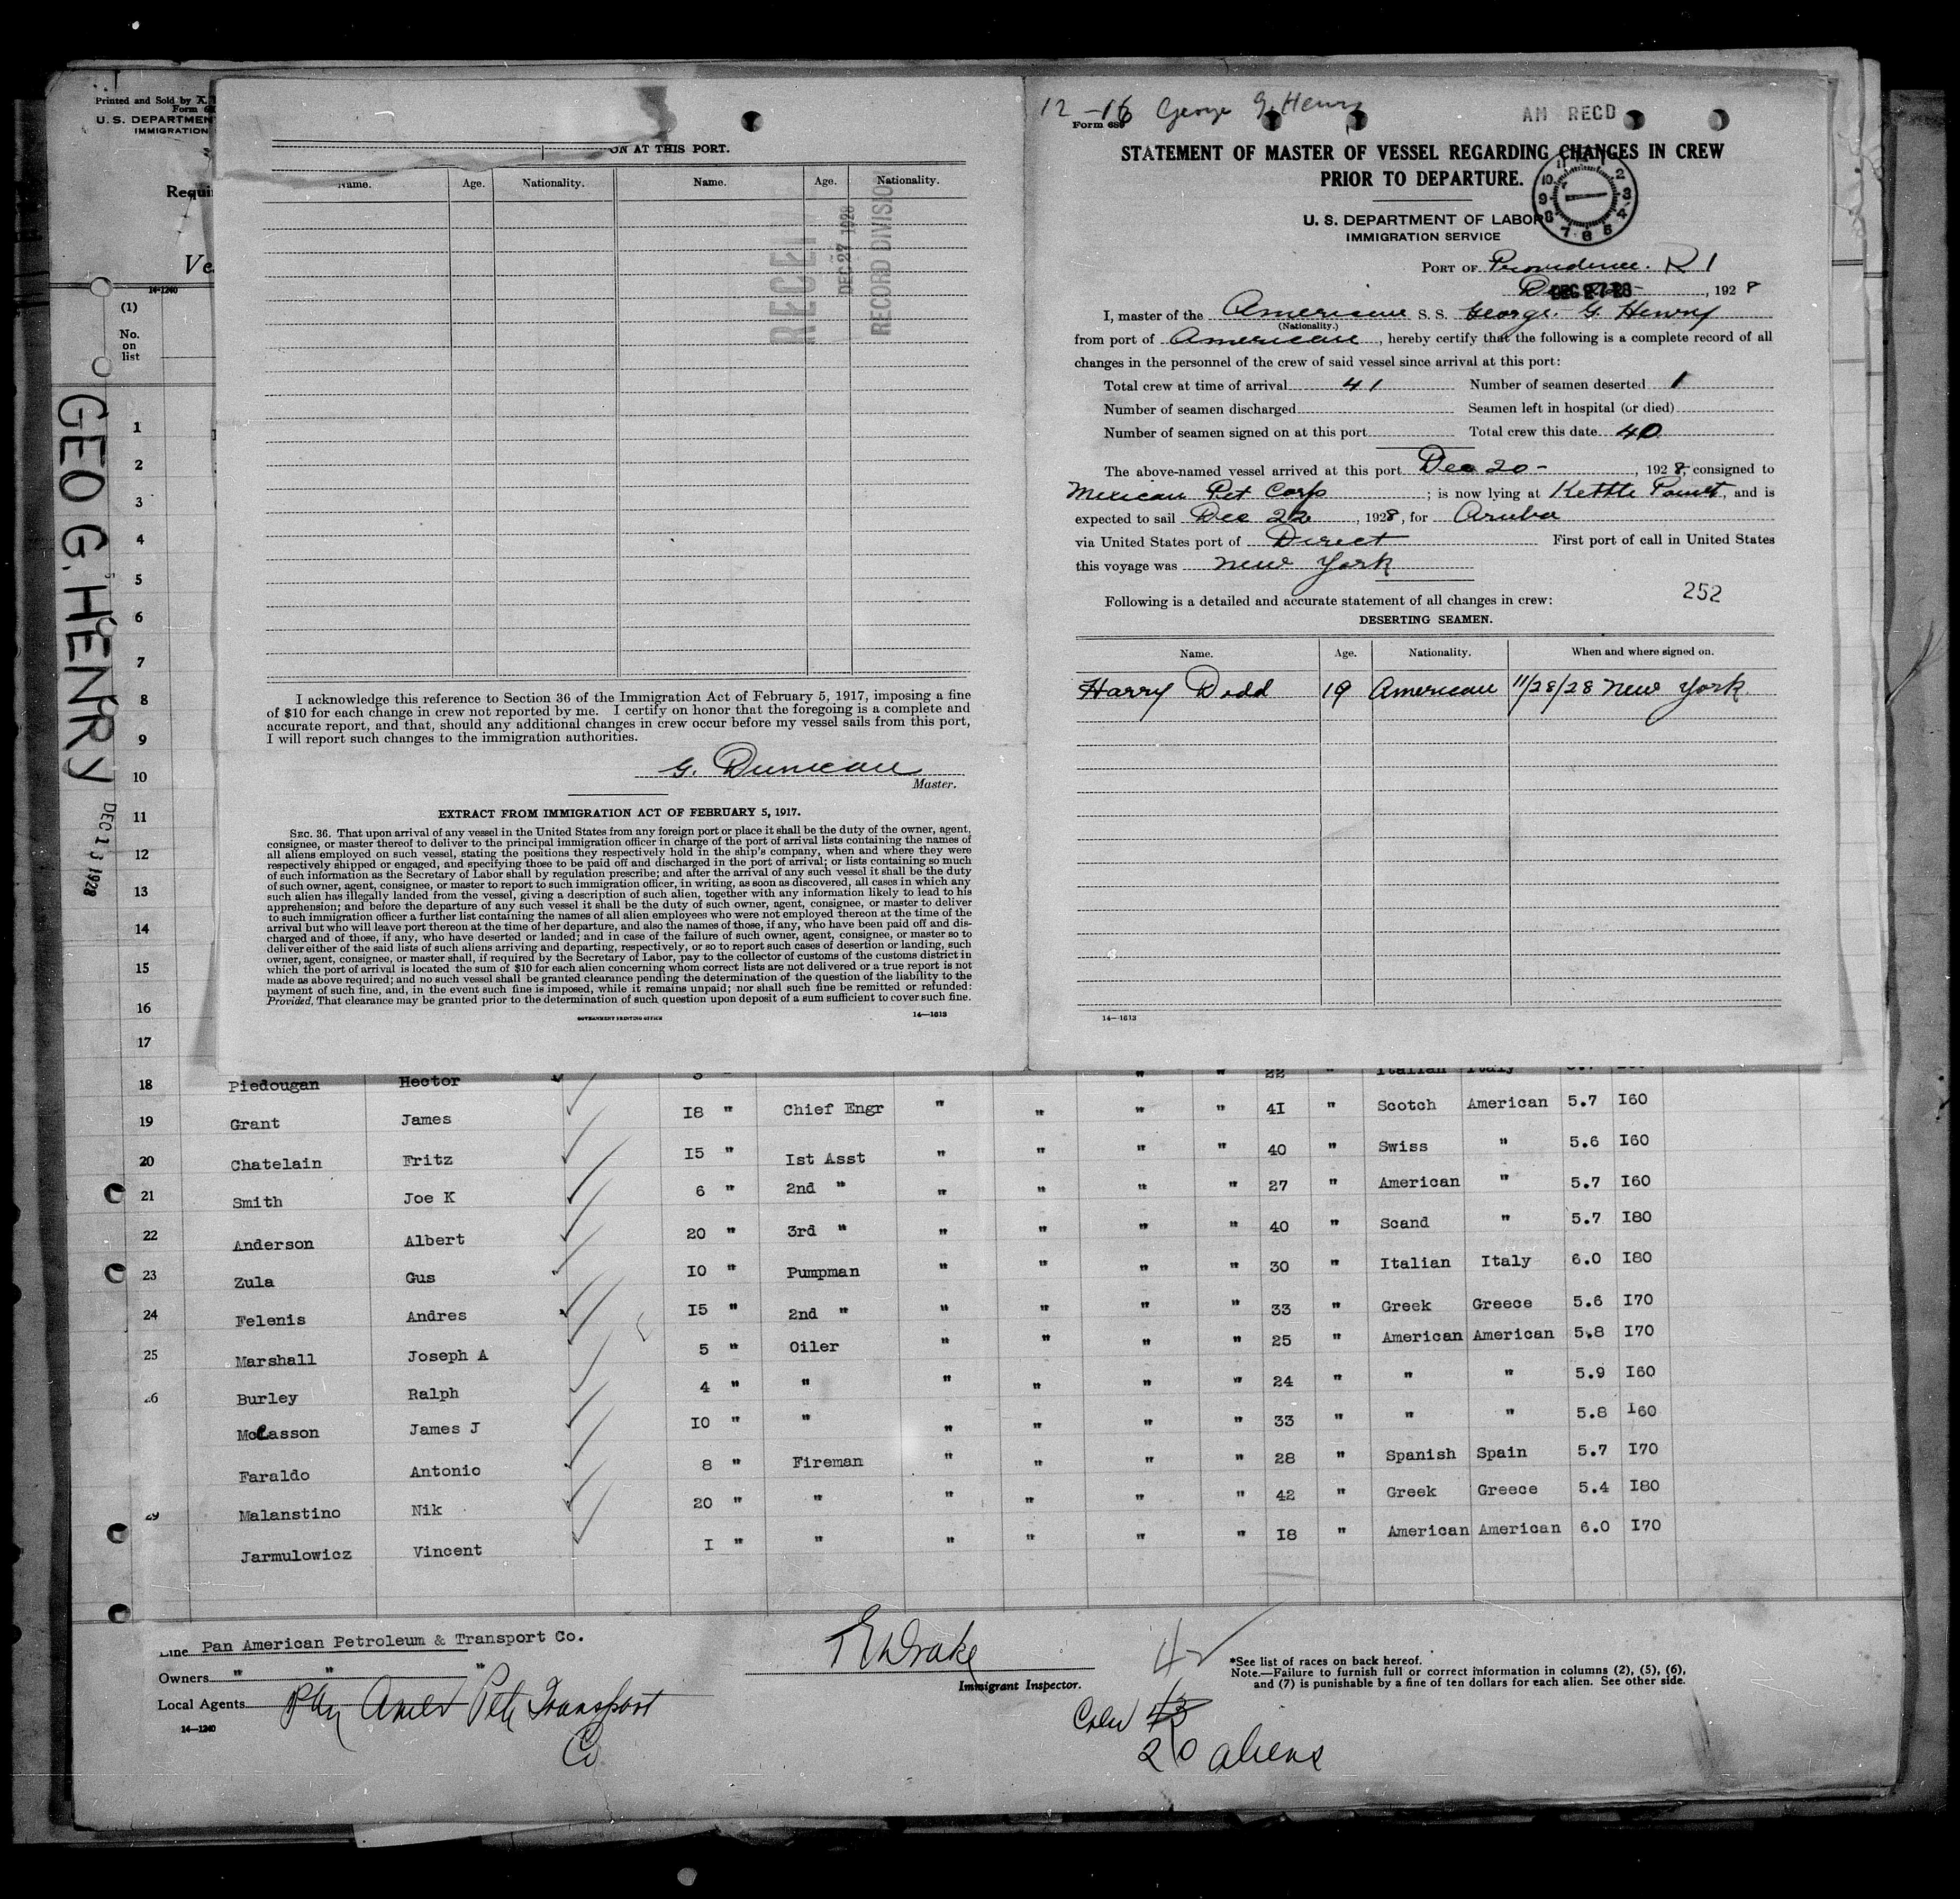 Printed and Sold by A.
Form 6
U. S. DEPARTMEN
IMMIGRATION
Requi
Ve
14-1240
(1)
No.
on
list
GEO G. HENRY
DEC 13 1928
ON AT THIS PORT.
Name. Age. Nationality. Name. Age. Nationality.
DEC 27 1928
RECORD DIVISION
I acknowledge this reference to Section 36 of the Immigration Act of February 5, 1917, imposing a fine
of $10 for each change in crew not reported by me. I certify on honor that the foregoing is a complete and
accurate report, and that, should any additional changes in crew occur before my vessel sails from this port,
I will report such changes to the immigration authorities.
G. Duncan
Master.
EXTRACT FROM IMMIGRATION ACT OF FEBRUARY 5, 1917.
SEC. 36. That upon arrival of any vessel in the United States from any foreign port or place it shall be the duty of the owner, agent,
consignee, or master thereof to deliver to the principal immigration officer in charge of the port of arrival lists containing the names of
all aliens employed on such vessel, stating the positions they respectively hold in the ship's company, when and where they were
respectively shipped or engaged, and specifying those to be paid off and discharged in the port of arrival; or lists containing so much
of such information as the Secretary of Labor shall by regulation prescribe; and after the arrival of any such vessel it shall be the duty
of such owner, agent, consignee, or master to report to such immigration officer, in writing, as soon as discovered, all cases in which any
such alien has illegally landed from the vessel, giving a description of such alien, together with any information likely to lead to his
apprehension; and before the departure of any such vessel it shall be the duty of such owner, agent, consignee, or master to deliver
to such immigration officer a further list containing the names of all alien employees who were not employed thereon at the time of the
arrival but who will leave port thereon at the time of her departure, and also the names of those, if any, who have been paid off and dis-
charged and of those, if any, who have deserted or landed; and in case of the failure of such owner, agent, consignee, or master so to
deliver either of the said lists of such aliens arriving and departing, respectively, or so to report such cases of desertion or landing, such
owner, agent, consignee, or master shall, if required by the Secretary of Labor, pay to the collector of customs of the customs district in
which the port of arrival is located the sum of $10 for each alien concerning whom correct lists are not delivered or a true report is not
made as above required; and no such vessel shall be granted clearance pending the determination of the question of the liability to the
payment of such fine, and, in the event such fine is imposed, while it remains unpaid; nor shall such fine be remitted or refunded:
Provided, That clearance may be granted prior to the determination of such question upon deposit of a sum sufficient to cover such fine.
GOVERNMENT PRINTING OFFICE 14—1613
12 -16 George G. Henry
AM RECD
Form 689
STATEMENT OF MASTER OF VESSEL REGARDING CHANGES IN CREW
PRIOR TO DEPARTURE.
U. S. DEPARTMENT OF LABOR
IMMIGRATION SERVICE
PORT OF Providence. R I
DEC 27 28, 1928
I, master of the American S. S. George. G. Henry
(Nationality.)
from port of American, hereby certify that the following is a complete record of all
changes in the personnel of the crew of said vessel since arrival at this port:
Total crew at time of arrival 41 Number of seamen deserted 1
Number of seamen discharged Seamen left in hospital (or died)
Number of seamen signed on at this port Total crew this date 40
The above-named vessel arrived at this port Dec 20 - , 1928, consigned to
Mexican Pet Corp ; is now lying at Kettle Point, and is
expected to sail Dec 22, 1928, for Aruba
via United States port of Direct First port of call in United States
this voyage was New York
252
Following is a detailed and accurate statement of all changes in crew:
DESERTING SEAMEN.
Name. Age. Nationality. When and where signed on.
Harry Dodd 19 American 11/28/28 New York.
14—1613
1
2
3
4
5
6
7
8
9
10
11
12
13
14
15
16
17
18 Piedougan Hector " " 22 " Italian Italy
19 Grant James 18 " Chief Engr " " " " 41 " Scotch American 5.7 160
20 Chatelain Fritz 15 " 1st Asst " " " " 40 " Swiss " 5.6 160
21 Smith Joe K 6 " 2nd " " " " " 27 " American " 5.7 160
22 Anderson Albert 20 " 3rd " " " " " 40 " Scand " 5.7 180
23 Zula Gus 10 " Pumpman " " " " 30 " Italian Italy 6.0 180
24 Felenis Andres 15 " 2nd " " " " " 33 " Greek Greece 5.6 170
25 Marshall Joseph A 5 " Oiler " " " " 25 " American American 5.8 170
26 Burley Ralph 4 " " " " " " 24 " " " 5.9 160
McCasson James J 10 " " " " " " 33 " " " 5.8 160
Faraldo Antonio 8 " Fireman " " " " 28 " Spanish Spain 5.7 170
29 Malanstino Nik 20 " " " " " " 42 " Greek Greece 5.4 180
Jarmulowicz Vincent 1 " " " " " " 18 " American American 6.0 170
Line Pan American Petroleum & Transport Co.
Owners " " "
Local Agents Pan Amer Pet Transport
Co
14—1240
Drake
Immigrant Inspector.
42
43
20 aliens
*See list of races on back hereof.
Note.—Failure to furnish full or correct information in columns (2), (5), (6),
and (7) is punishable by a fine of ten dollars for each alien. See other side.